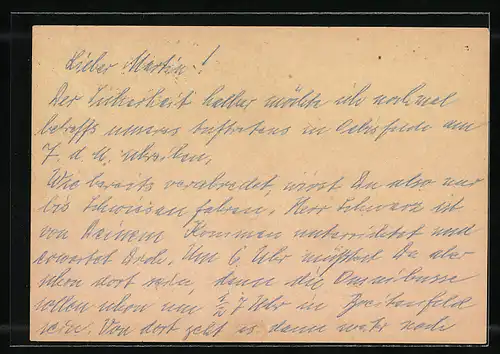 Lieber Martin!
Der Sicherheit halber möchte ich nochmal
betreffs unseres Auftretens in Oebisfelde am
7. d. M. schreiben.
Wie bereits verabredet, wirst Du also nur
bis fahren. Herr Schwarz ist
von Deinem Kommen unterrichtet und
erwartet Dich. Um 6 Uhr müßtest Du aber
schon dort sein, denn die Omnibusse
sollen schon um ½ 7 Uhr in Breitenfeld
sein. Von dort geht es dann nach